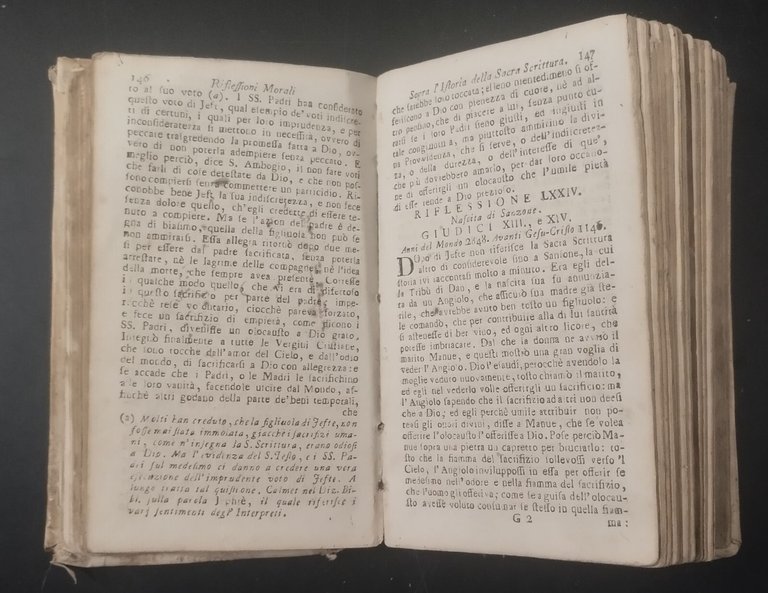 146
Riflessioni Morali
to al suo voto (a). I SS. Padri han considerato
questo voto di Jeft, qual esempio de' voti indiscreti
di certuni, i quali per loro imprudenza, e per
inconsideratezza si mettono in necessità, ovvero di
peccare trasgredendo la promessa fatta a Dio, ov-
vero di non poterla adempiere senza peccato. E
meglio perciò, dice S. Ambogio, il non fare voti
che farli di cose detestate da Dio, e che non pos-
sono compiersi senza commettere un parricidio. Ri-
conobbe bene Jeft la sua indiscretezza, e non fece
senza dolore questo, ch'egli credette di essere te-
nuto a compiere. Ma se l'azion del padre è de-
gna di biasimo, quella della figliuola non può se
non ammirarsi. Essa allegra ritornò dopo due me-
si per essere dal padre sacrificata, senza poterla
arrestare, nè le lagrime delle compagne, nè l'idea
della morte, che sempre avea presente. Corresse
in qualche modo quello, che vi era di difettoso
in questo sacrifizio per parte del padre, impe-
rocchè rese volontario, ciocchè pareva sforzato,
e fece un sacrifizio di empietà, come dicono i
SS. Padri, divenisse un olocausto a Dio grato.
Integnò finalmente a tutte le Vergini Cristiane,
che sono tocche dall'amor del Cielo, e dall'odio
del mondo, di sacrificarsi a Dio con allegrezza: e
se accade che i Padri, o le Madri le sacrifichino
alle loro vanità, facendole uscire dal Mondo, af-
finchè altri godano della parte de' beni temporali,
che
(a) Molti han creduto, che la figliuola di Jefte, non
fosse mai stata immolata, giacchè i sacrifizi uma-
ni, come n'insegna la S. Scrittura, erano odiosi
a Dio. Ma l'evidenza del S. Testo, e i SS. Pa-
dri sul medesimo ci danno a credere una vera
esecuzione dell'imprudente voto di Jefte. A
lungo tratta tal quistione. Calmet nel Diz. Bi-
bl. sulla parola Jephtè, il quale riferisce i
varj sentimenti degl' Interpreti.
Sacra l'Istoria della Sacra Scrittura. 147
che sarebbe loro toccata; elleno nientedimeno si of-
feriscono a Dio con pienezza di cuore, nè ad al-
tro pensino, che di piacere a lui, senza punto cu-
rarsi se i loro Padri sieno giusti, ed ingiusti in
tale congiuntura, ma piuttosto ammirino la divi-
na Provvidenza, che si serve, o dell'indiscretez-
za, o della durezza, o dell'interesse di que',
che più dovrebbero amarle, per dar loro occasio-
ne di offerirgli un olocausto che l'umile pietà
di esse rende a Dio prezioso.
RIFLESSIONE LXXIV.
Nascita di Sanzone.
GIUDICI XIII., e XIV.
Anni del Mondo 2848. Avanti Gesu-Cristo 1146.
Dopo di Jefte non riferisce la Sacra Scrittura
altro di considerevole sino a Sansone, la cui
storia ivi raccontasi molto a minuto. Era egli del-
la Tribù di Dan, e la nascita sua fu annunzia-
ta da un Angiolo, che assicurò sua madre già ste-
rile, che avrebbe avuto ben tosto un figliuolo: e
le comandò, che per contribuire alla di lui santità
si astenesse di ber vino, ed ogni altro licore, che
potesse imbriacare. Dal che la donna ne avvisò il
marito Manue, e questi mostrò una gran voglia di
veder l'Angiolo. Dio l'esaudì, perocchè avendolo la
moglie veduto nuovamente, tosto chiamò il marito,
ed egli nel vederlo volle offerirgli un sacrifizio: ma
l'Angiolo sapendo che il sacrifizio ad altri non deesi
che a Dio; ed egli perchè umile attribuir non po-
teasi gli onori divini, disse a Manue, che se volea
offerire l'olocausto l'offerisse a Dio. Pose perciò Ma-
nue sopra una pietra un capretto per bruciarlo: to-
sto che la fiamma del sacrifizio sollevossi verso 'l
Cielo, l'Angiolo inviluppossi in essa per offerir se
medesimo nell'odore e nella fiamma del sacrifizio,
che l'uomo gli offeriva; come se a guisa dell'olocau-
sto avesse voluto consumar se stesso in quella fiam-
G 2
ma: